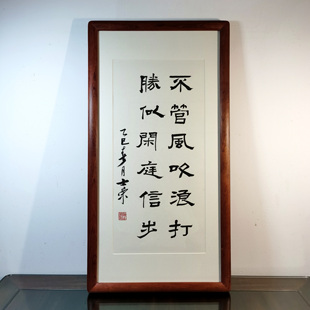 不管風吹浪打
勝似閑庭信步
乙巳春月士榮